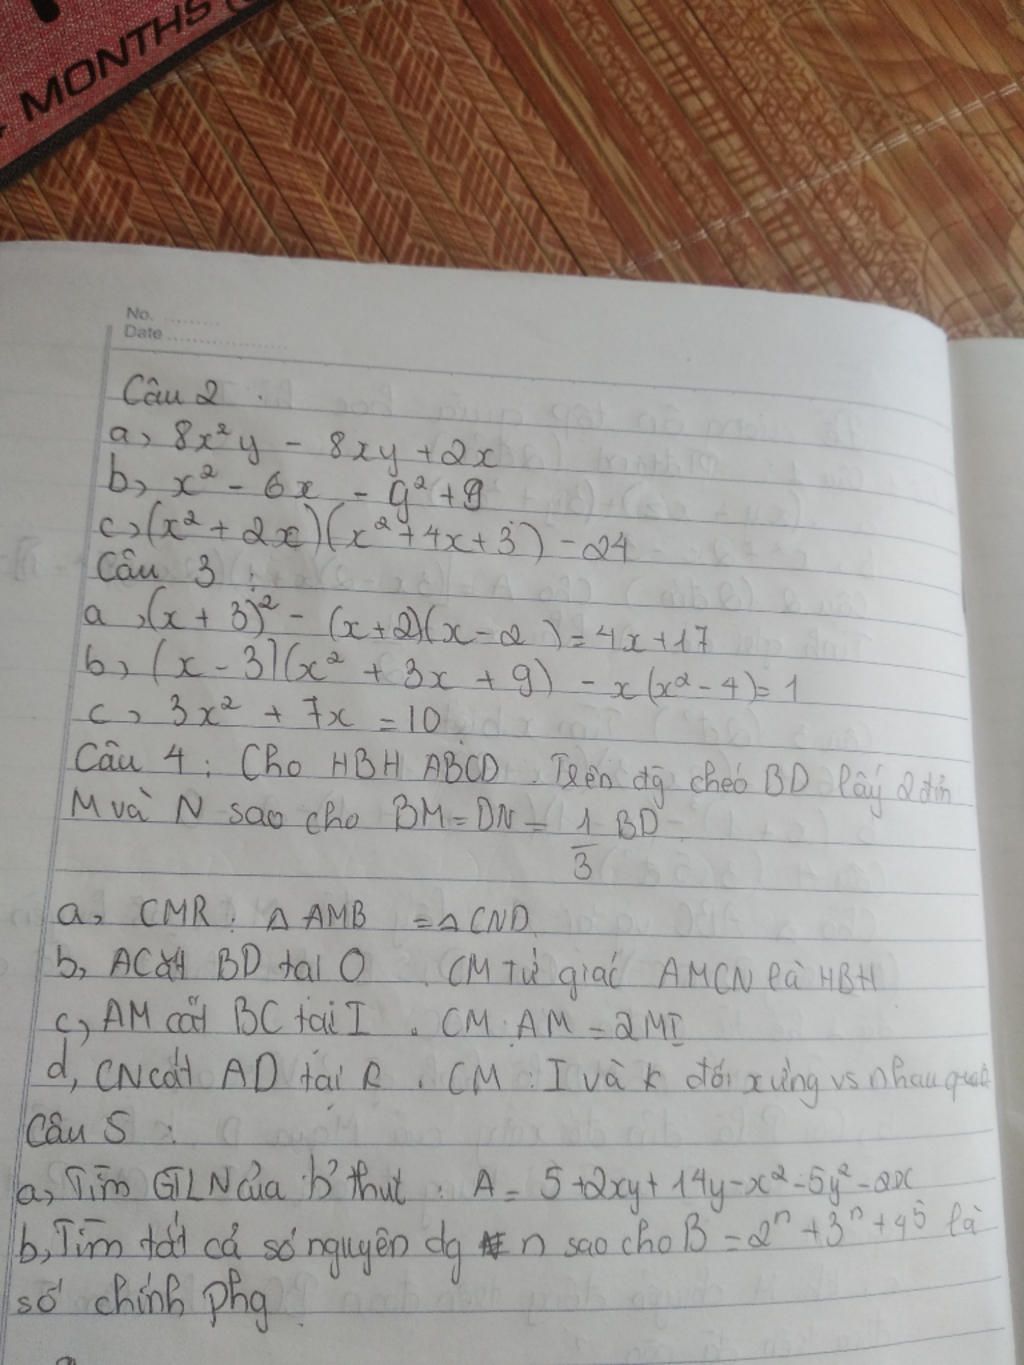 MONTHS
No.
Date
Câu 2 :
a, 8x²y - 8xy + 2x
b, x² - 6x - y² + 9
c, (x² + 2x)(x² + 4x + 3) - 24
Câu 3 :
a, (x + 3)² - (x+2)(x-2) = 4x + 17
b, (x - 3)(x² + 3x + 9) - x(x² - 4) = 1
c, 3x² + 7x = 10
Câu 4 : Cho HBH ABCD . Trên đg chéo BD lấy 2 đỉn
M và N sao cho BM = DN = 1/3 BD
a, CMR : Δ AMB = Δ CND
b, AC cắt BD tại O . CM Tứ giác AMCN là HBH
c, AM cắt BC tại I . CM : AM = 2MI
d, CN cắt AD tại K . CM : I và K đối xứng vs nhau qua
Câu 5 :
a, Tìm GTLN của b' thưt : A = 5 + 2xy + 14y - x² - 5y² - 2x
b, Tìm tất cả số nguyên dg n sao cho B = 2ⁿ + 3ⁿ + 4ⁿ là
số chính phg